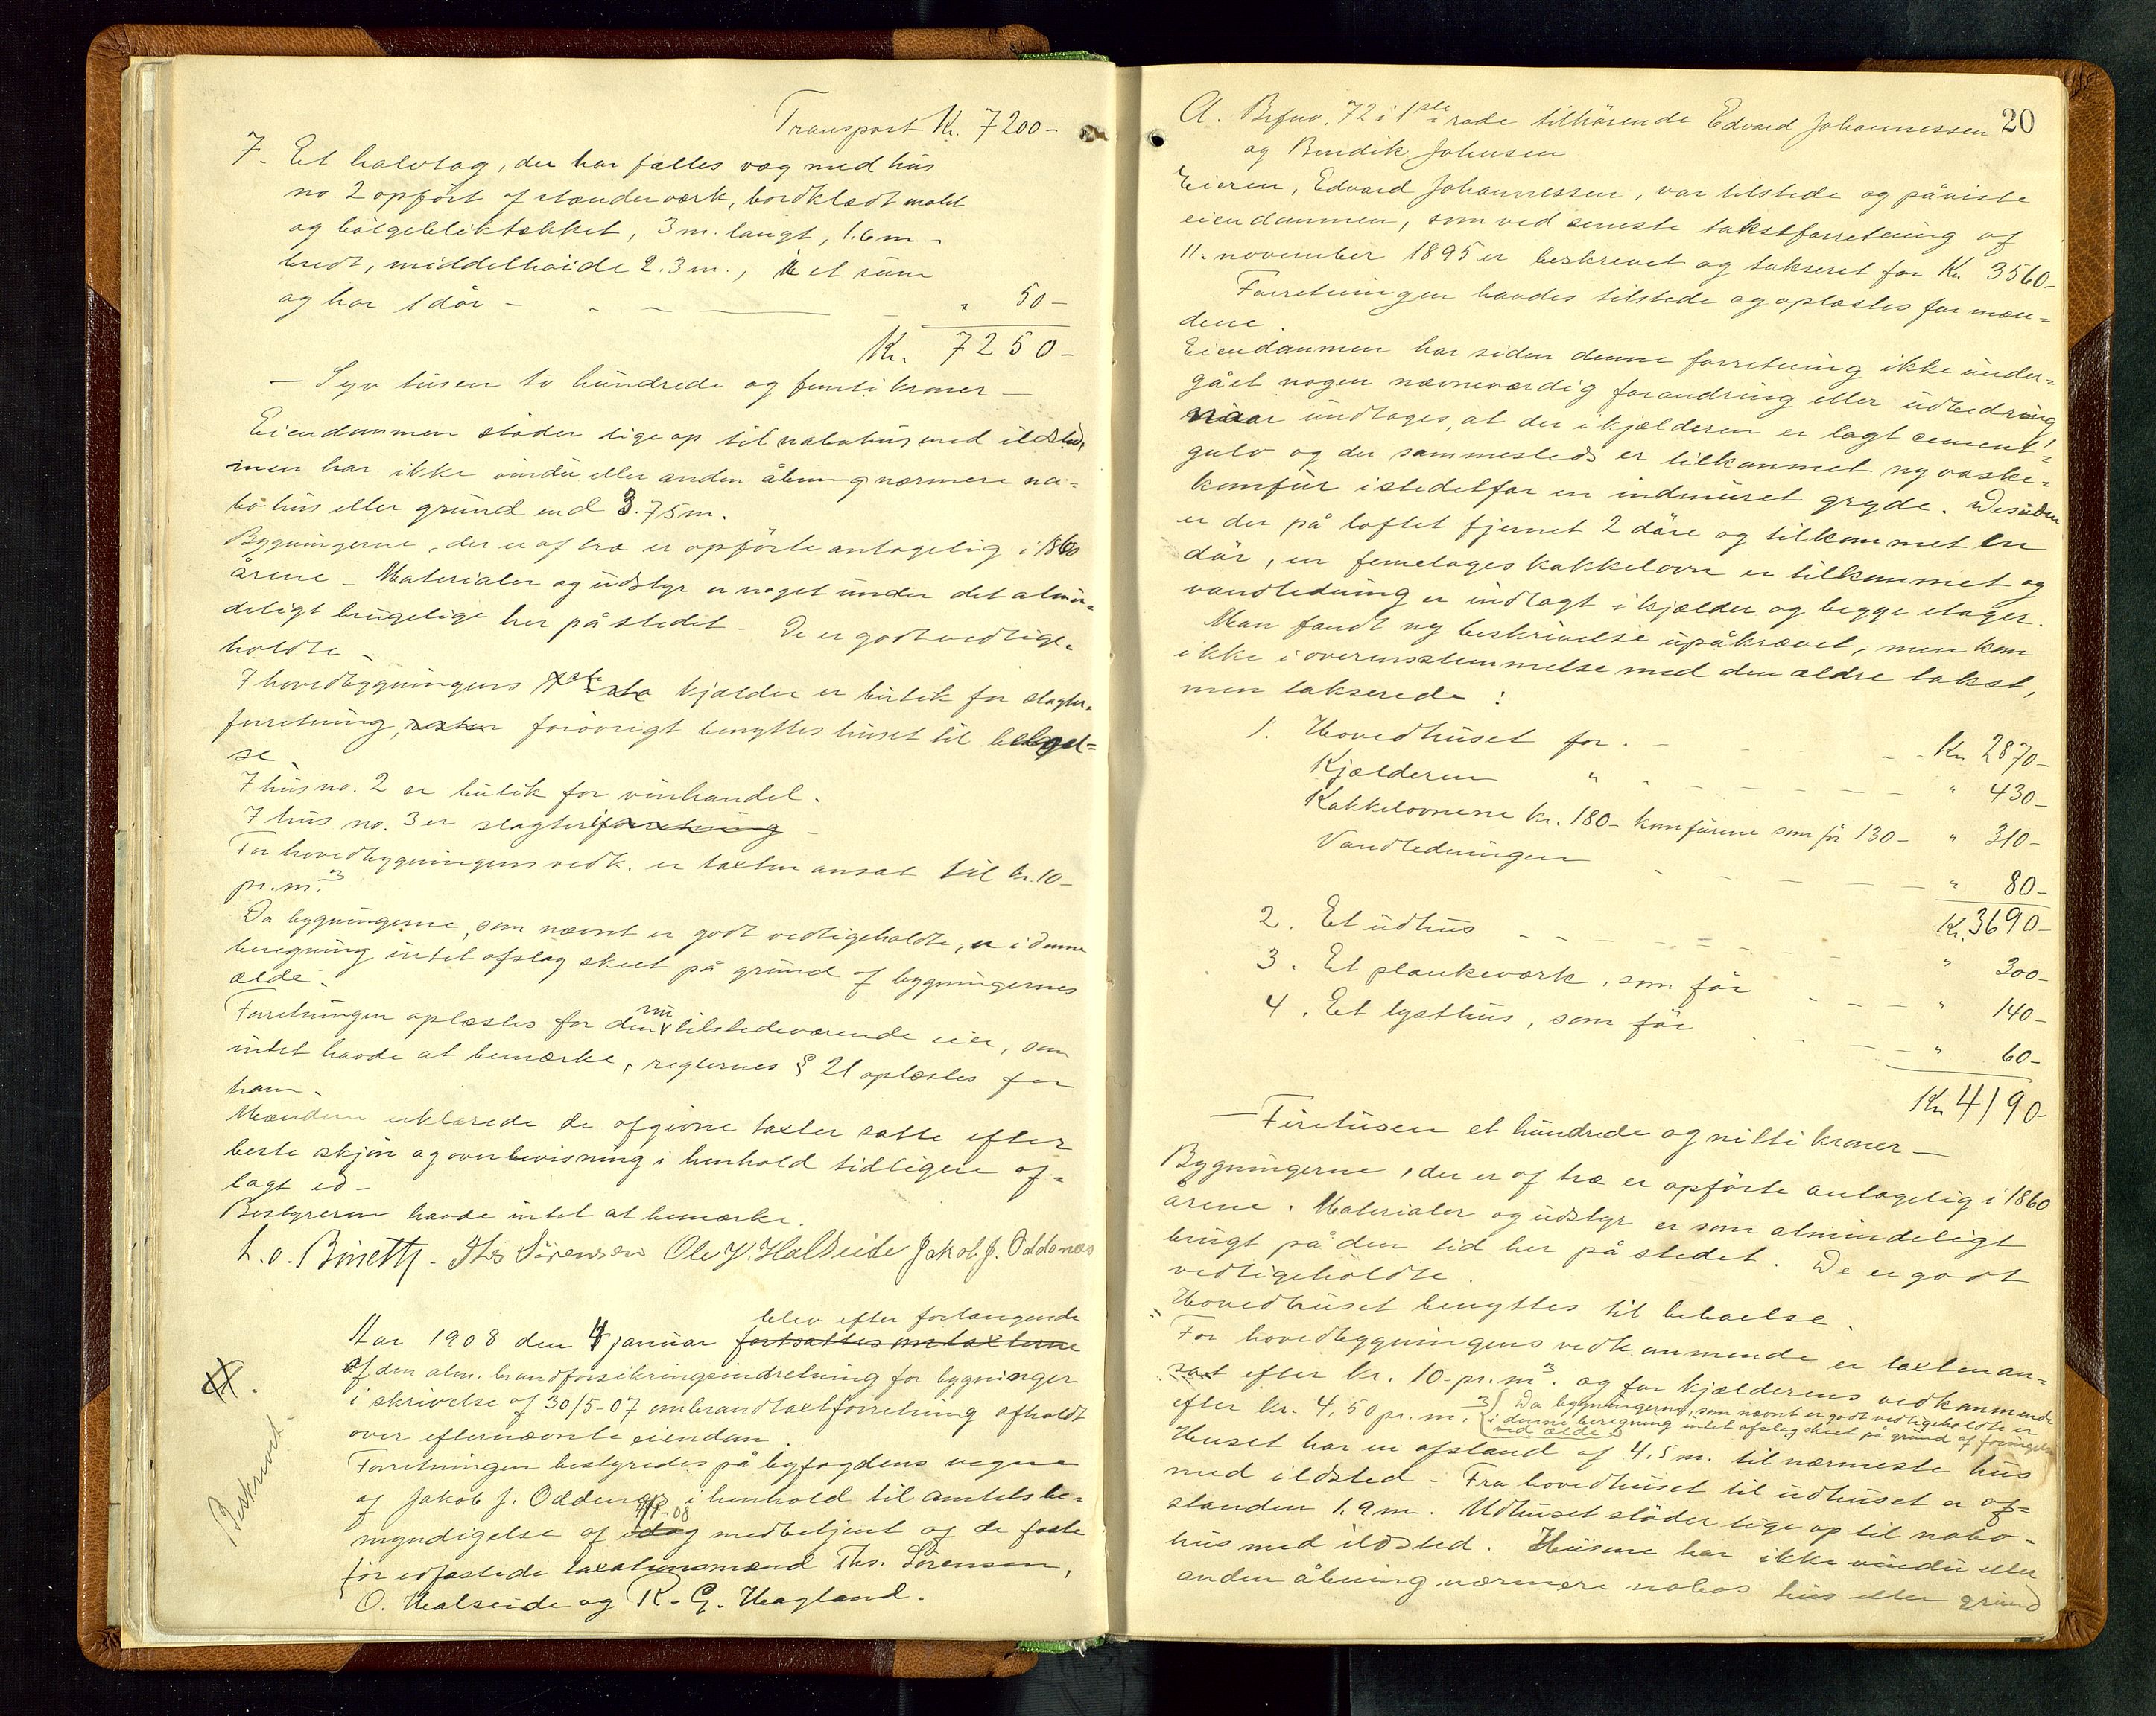 Transport Kr. 7200-
7. Et halvtag, der har fælles væg med hus
no. 2 opført af stænderværk, bordklædt malet
og bølgebliktækket, 3 m. langt, 1.6 m.
bredt, middelhøide 2.3 m., et rum
og har 1 dør - - - — " 50-
Kr. 7250-
— Syv tusen to hundrede og femti kroner —
Eiendommen støder lige op til nabohus med ildsted,
men har ikke vindu eller anden åbning nærmere na-
bo hus eller grund end 3.75 m.
Bygningerne, der er af træ er opførte antagelig i 1860
årene - Materialer og udstyr er noget under det almin-
deligt brugelige her på stedet - De er godt vedlige-
holdte -
I hovedbygningens kjælder er butik for slagter-
forretning, forøvrigt benyttes huset til beboel-
se
I hus no. 2 er butik for vinhandel.
I hus no. 3 er slagteriforretning -
For hovedbygningens vedk. er taxten ansat til kr. 10-
pr. m.³
Da bygningerne, som nævnt er godt vedligeholdte, er i denne
beregning intet afslag skeet på grund af bygningernes
ælde.
Forretningen oplæstes for den nu tilstedeværende eier, som
intet havde at bemærke, reglernes § 21 oplæstes for
ham.
Mændene erklærede de afgivne taxter satte efter
beste skjøn og overbevisning i henhold tidligere af-
lagt ed -
Bestyreren havde intet at bemærke.
Ths Sørensen Ole J. Halseide Jakob J. Oddenæs
blev efter forlangende
Aar 1908 den 4 januar fortsattes
af den alm. brandforsikringsindretning for bygninger
i skrivelse af 30/5-07 brandtaxtforretning afholdt
over efternævnte eiendom.
Forretningen bestyredes på byfogdens vegne
af Jakob J. Oddenæs i henhold til amtets be-
-08
myndigelse af idag medbetjent af de faste
før edfæstede taxationsmænd Ths. Sørensen,
O. Halseide og R. G. Hagland.
Beskrevet
20
A. Brfnr. 72 i 1ste rode tilhørende Edvard Johannessen
og Bendik Johnsen
Eieren, Edvard Johannessen, var tilstede og påviste
eiendommen, som ved seneste takstforretning af
11. november 1895 er beskrevet og takseret for Kr. 3560-
Forretningen havdes tilstede og oplæstes for mæn-
dene.
Eiendommen har siden denne forretning ikke under-
gået nogen nævneværdig forandring eller udbedring,
naar undtages, at der i kjælderen er lagt cement-
gulv og der sammesteds er tilkommet ny vaske-
komfur istedetfor en indmuret gryde. Desuden
er der på loftet fjernet 2 døre og tilkommet en
dør, en femetages kakkelovn er tilkommet og
vandledning er indlagt i kjælder og begge etager.
Man fandt ny beskrivelse upåkrævet, men kom
ikke i overensstemmelse med den ældre takst,
men takserede:
1. Hovedhuset for - - - Kr. 2870-
Kjælderen " - - - - - - " 430-
Kakkelovnene kr. 180- komfurene som før 130- " 310-
Vandledningen - - - - - " 80-
Kr. 3690-
2. Et udhus - - - - - " 300-
3. Et plankeværk, som før - - - " 140-
4. Et lysthus, som før - - - " 60-
Kr. 4190-
— Firetusen et hundrede og nitti kroner —
Bygningerne, der er af træ er opførte antagelig i 1860
årene. Materialer og udstyr er som almindeligt
brugt på den tid her på stedet. De er godt
vedligeholdte.
Hovedhuset benyttes til beboelse.
For hovedbygningens vedkommende er taxten an-
sat efter kr. 10- pr. m³. og for kjælderens vedkommende
efter kr. 4,50 pr. m.³ Da bygningerne, som nævnt er godt vedligeholdte er
i denne beregning intet afslag skeet på grund af forringelse
ved ælde.
Huset har en afstand af 4.5 m. til nærmeste hus
med ildsted - Fra hovedhuset til udhuset er af-
standen 1.9 m. Udhuset støder lige op til nabo-
hus med ildsted. Husene har ikke vindu eller
anden åbning nærmere nabos hus eller grund